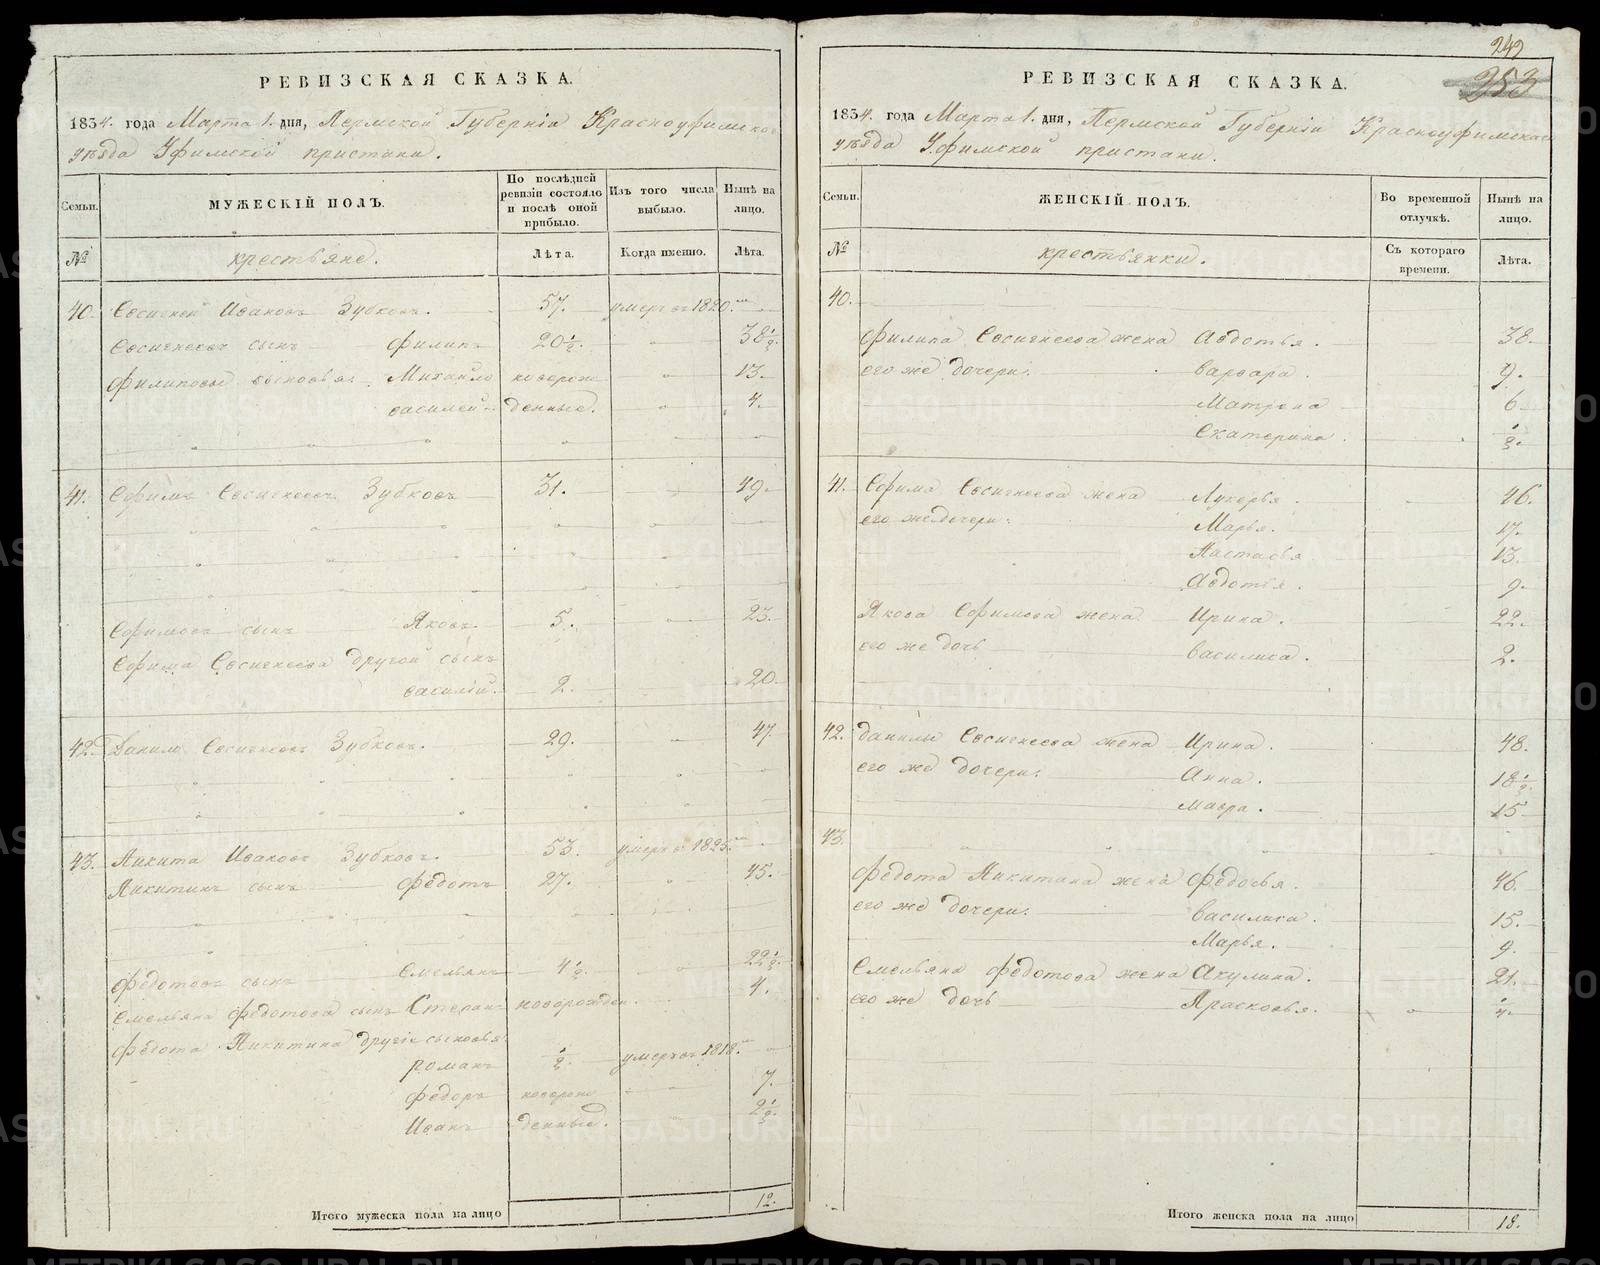 РЕВИЗСКАЯ СКАЗКА.
1834. года Марта 1. дня, Пермской Губернiи Красноуфимскаго
уѣзда Уфимской пристани.
Семьи.
МУЖЕСКIЙ ПОЛЪ.
По послѣдней ревизiи состояло и послѣ оной прибыло.
Изъ того числа выбыло.
Нынѣ на лицо.
№
крестьяне.
Лѣта.
Когда именно.
Лѣта.
40. Евсигней Ивановъ Зубковъ. 57. умеръ въ 1820.
Евсигнеевъ сынъ Филипъ 20½. 38½.
Филиповы сыновья: Михайло новорож 13.
Василей денные. 4.
41. Ефимъ Евсигнеевъ Зубковъ 31. 49.
Ефимовъ сынъ Яковъ. 5. 23.
Ефима Евсигнеева другой сынъ
Василiй. 2. 20.
42. Данило Евсигнеевъ Зубковъ. 29. 47.
43. Никита Ивановъ Зубковъ. 53. умеръ въ 1825.
Никитинъ сынъ Федотъ 27. 45.
Федотовъ сынъ Емельянъ 4½. 22½.
Емельяна Федотова сынъ Степанъ новорожден. 4.
Федота Никитина другiе сыновья:
Романъ ½. умеръ въ 1818.
Федоръ новорож 7.
Иванъ денные. 2½.
Итого мужеска пола на лицо 12.
242
253
РЕВИЗСКАЯ СКАЗКА.
1834. года Марта 1. дня, Пермской Губернiи Красноуфимскаго
уѣзда Уфимской пристани.
Семьи.
ЖЕНСКIЙ ПОЛЪ.
Во временной отлучкѣ.
Нынѣ на лицо.
№
крестьянки.
Съ котораго времени.
Лѣта.
40.
Филипа Евсигнеева жена Авдотья. 38.
его же дочери: Варвара. 9.
Матрона 6.
Екатерина. ½.
41. Ефима Евсигнеева жена Лукерья. 46.
его же дочери: Марья. 17.
Настасья 13.
Авдотья. 9.
Якова Ефимова жена Ирина. 22.
его же дочь Василиса. 2.
42. Данилы Евсигнеева жена Ирина. 48.
его же дочери: Анна. 18½.
Мавра. 15
43.
Федота Никитина жена Федосья. 46.
его же дочери: Василиса. 15.
Марья. 9.
Емельяна Федотова жена Акулина. 21.
его же дочь Парасковья.
Итого женска пола на лицо 18.
METRIKI.GASO-URAL.RU